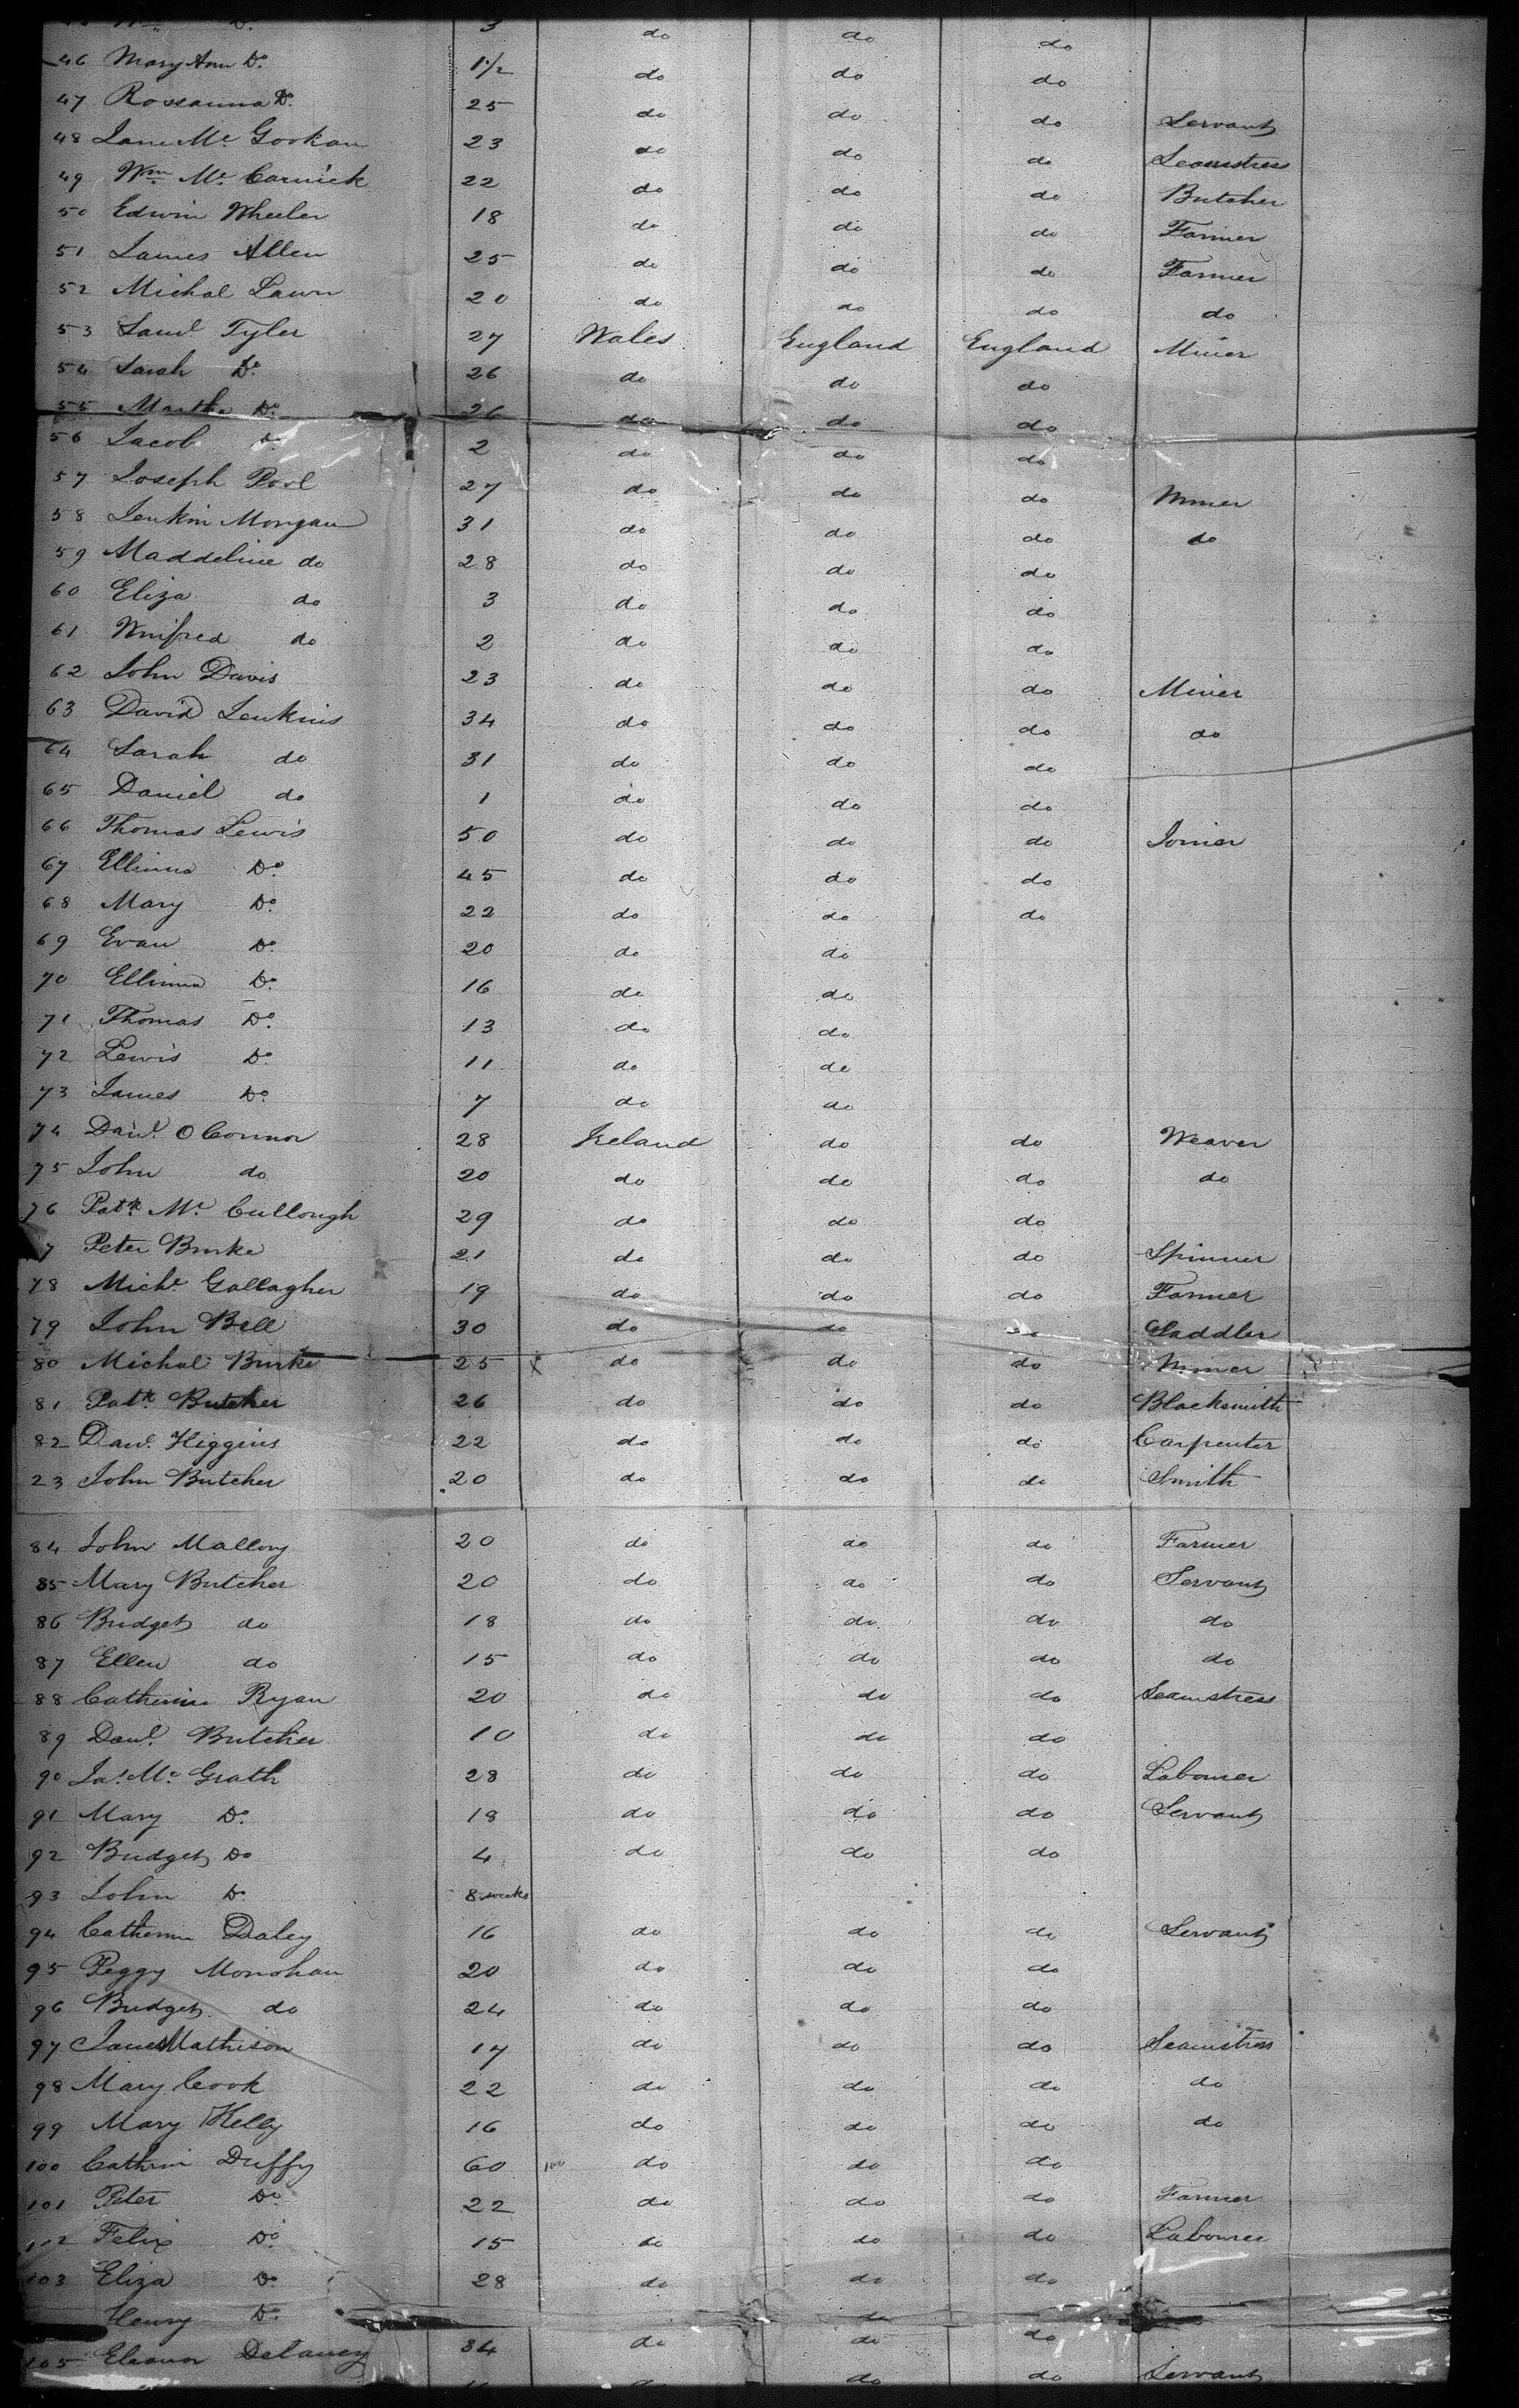 3 do do do
46 Mary Ann Do. 1 1/2 do do do
47 Rossanna Do. 25 do do do Servant
48 Jane Mc. Gookan 23 do do do Seamstress
49 Wm Mc. Cornick 22 do do do Butcher
50 Edwin Wheeler 18 do do do Farmer
51 James Allen 25 do do do Farmer
52 Michal Lawn 20 do do do do
53 Saml. Tyler 27 Wales England England Miner
54 Sarah Do. 26 do do do
55 Martha Do. 26 do do do
56 Jacob do 2 do do do
57 Joseph Pool 27 do do do Miner
58 Jenkin Morgan 31 do do do do
59 Maddeline do 28 do do do
60 Eliza do 3 do do do
61 Winifred do 2 do do do
62 John Davis 23 do do do Miner
63 David Jenkins 34 do do do do
64 Sarah do 31 do do do
65 Daniel do 1 do do do
66 Thomas Lewis 50 do do do Joiner
67 Ellinna Do. 45 do do do
68 Mary Do. 22 do do do
69 Evan Do. 20 do do
70 Ellinna Do. 16 do do
71 Thomas Do. 13 do do
72 Lewis Do. 11 do do
73 James Do. 7 do do
74 Danl. O Connor 28 Ireland do do Weaver
75 John do 20 do do do do
76 Patk. Mc. Cullough 29 do do do
7 Peter Burke 21 do do do Spinner
78 Michl. Gallagher 19 do do do Farmer
79 John Bell 30 do do do Saddler
80 Michal Burke 25 x do do do Miner
81 Patk. Butcher 26 do do do Blacksmith
82 Danl. Higgins 22 do do do Carpenter
23 John Butcher 20 do do do Smith
84 John Mallony 20 do do do Farmer
85 Mary Butcher 20 do do do Servant
86 Bridget do 18 do do do do
87 Ellen do 15 do do do do
88 Catherine Ryan 20 do do do Seamstress
89 Danl. Butcher 10 do do do
90 Jas. Mc Grath 28 do do do Labourer
91 Mary Do. 18 do do do Servant
92 Bridget Do 4 do do do
93 John Do. 8 weeks
94 Catherine Daley 16 do do do Servant
95 Peggy Monohan 20 do do do
96 Bridget do 24 do do do
97 Jane Mathison 17 do do do Seamstress
98 Mary Cook 22 do do do do
99 Mary Kelly 16 do do do do
100 Cathrin Duffy 60 do do do
101 Peter Do 22 do do do Farmer
102 Felix Do. 15 do do do Labourer
103 Eliza Do 28 do do do
Henry Do. do
105 Eleanor Delaney 34 do do do
do do Servant